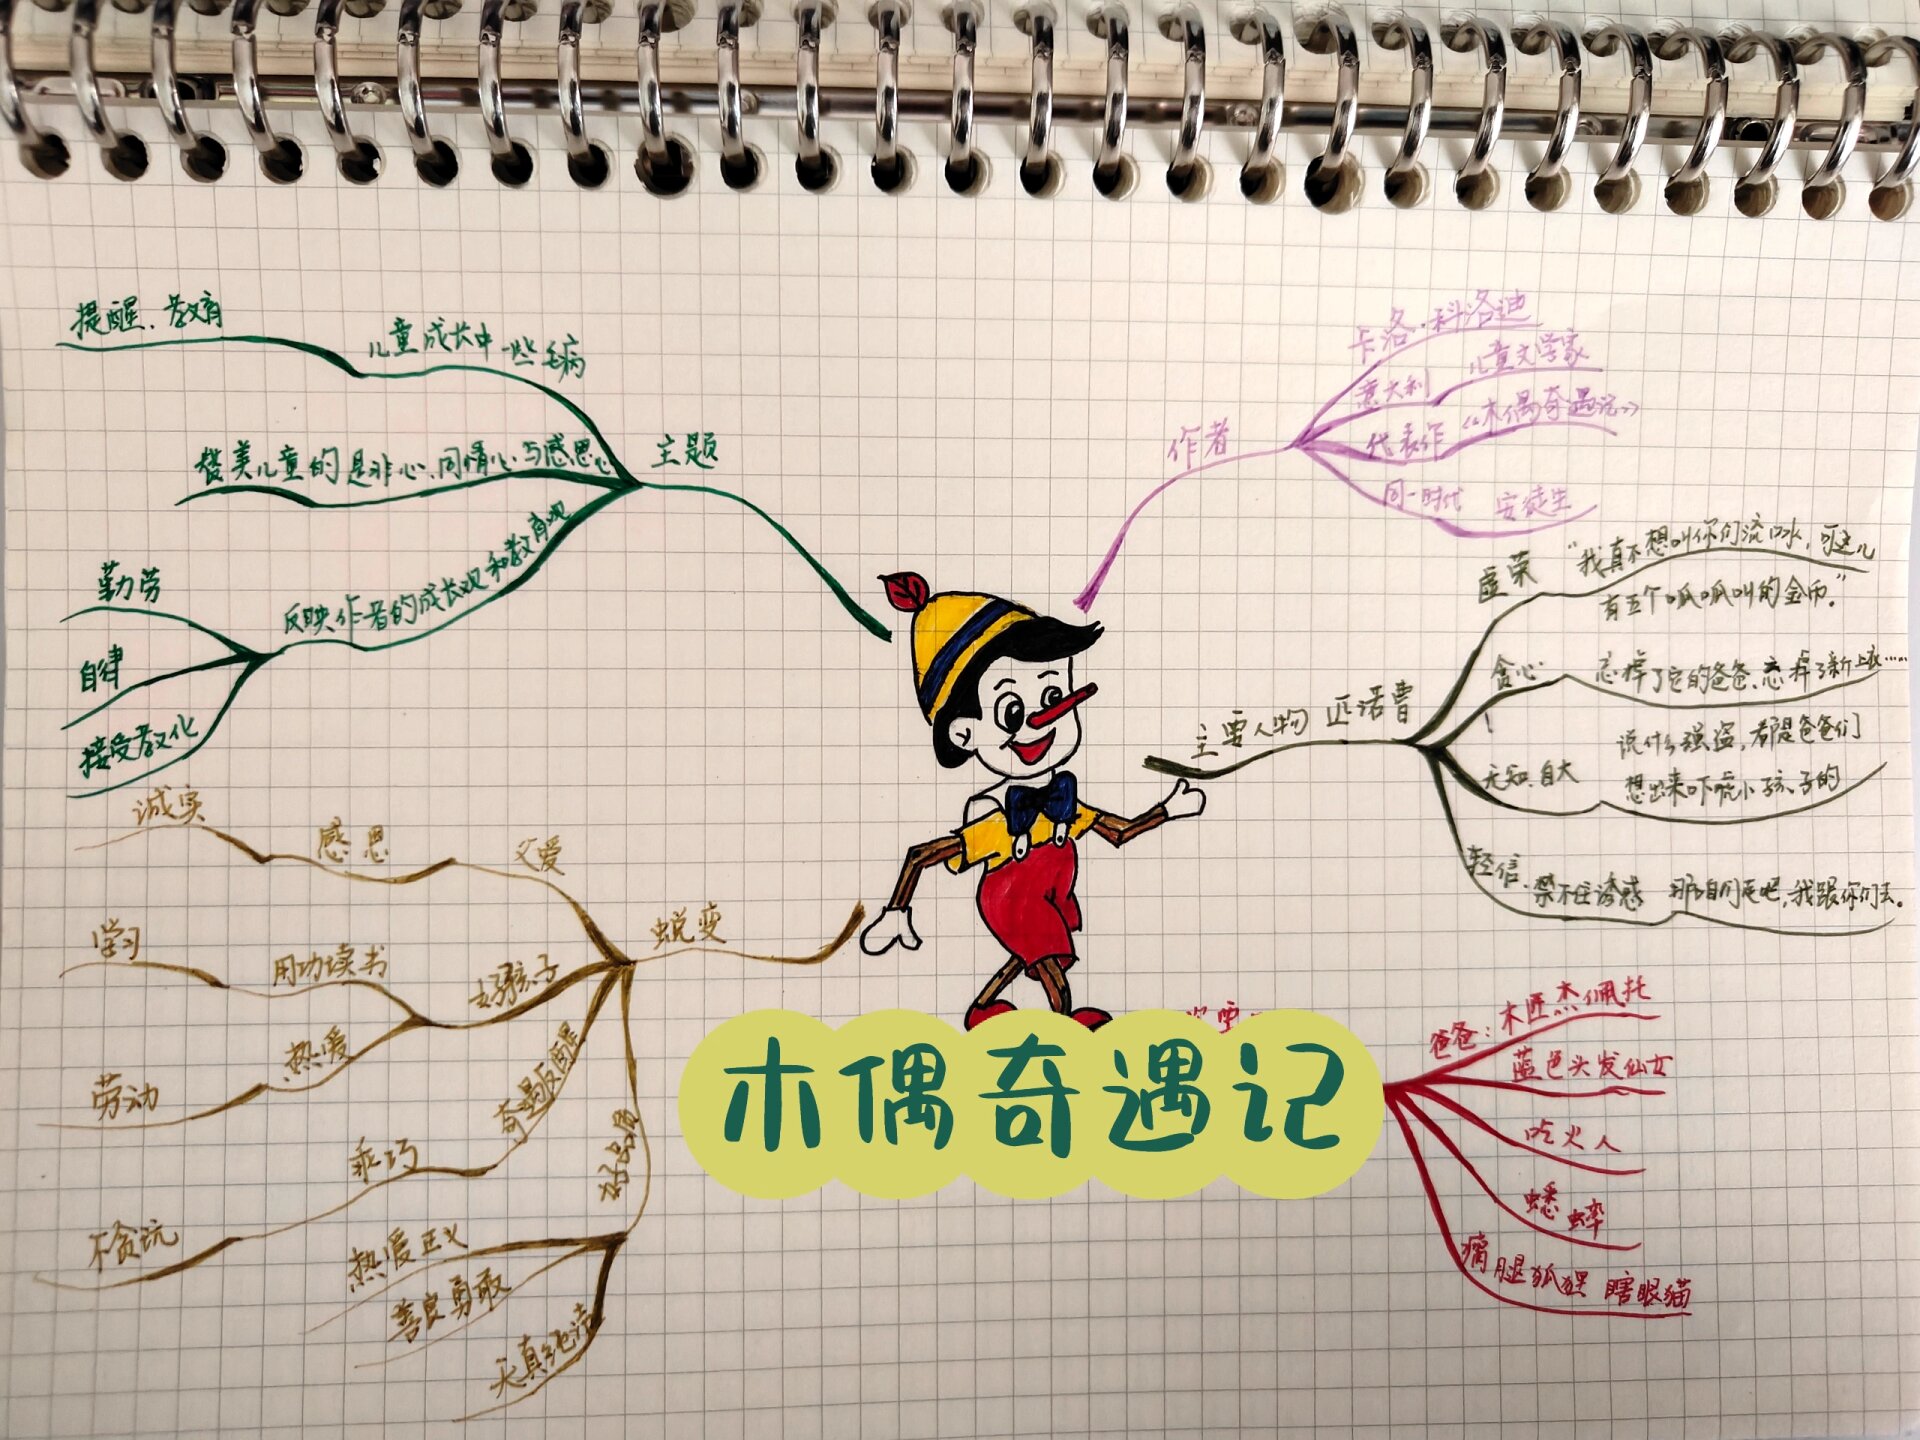 木偶奇遇记
作者
卡洛·科洛迪
意大利 儿童文学家
代表作 《木偶奇遇记》
同一时代 安徒生
主要人物 匹诺曹
虚荣 "我真不想叫你们流口水，可这儿
有五个呱呱叫的金币。"
贪心 忘掉了它的爸爸、忘掉了新上衣……
无知、自大 说什么强盗，都是爸爸们
想出来吓唬小孩子的
轻信、禁不住诱惑 那咱们走吧，我跟你们去。
爸爸：木匠杰佩托
蓝色头发仙女
吃火人
蟋蟀
瘸腿狐狸 瞎眼猫
主题
儿童成长中一些毛病
提醒、教育
赞美儿童的是非心、同情心与感恩心
反映作者的成长观和教育观
勤劳
自律
接受教化
蜕变
父爱
感恩
诚实
好孩子
用功读书
学习
热爱
劳动
奇遇反醒
乖巧
不贪玩
好品质
热爱正义
善良勇敢
天真纯洁